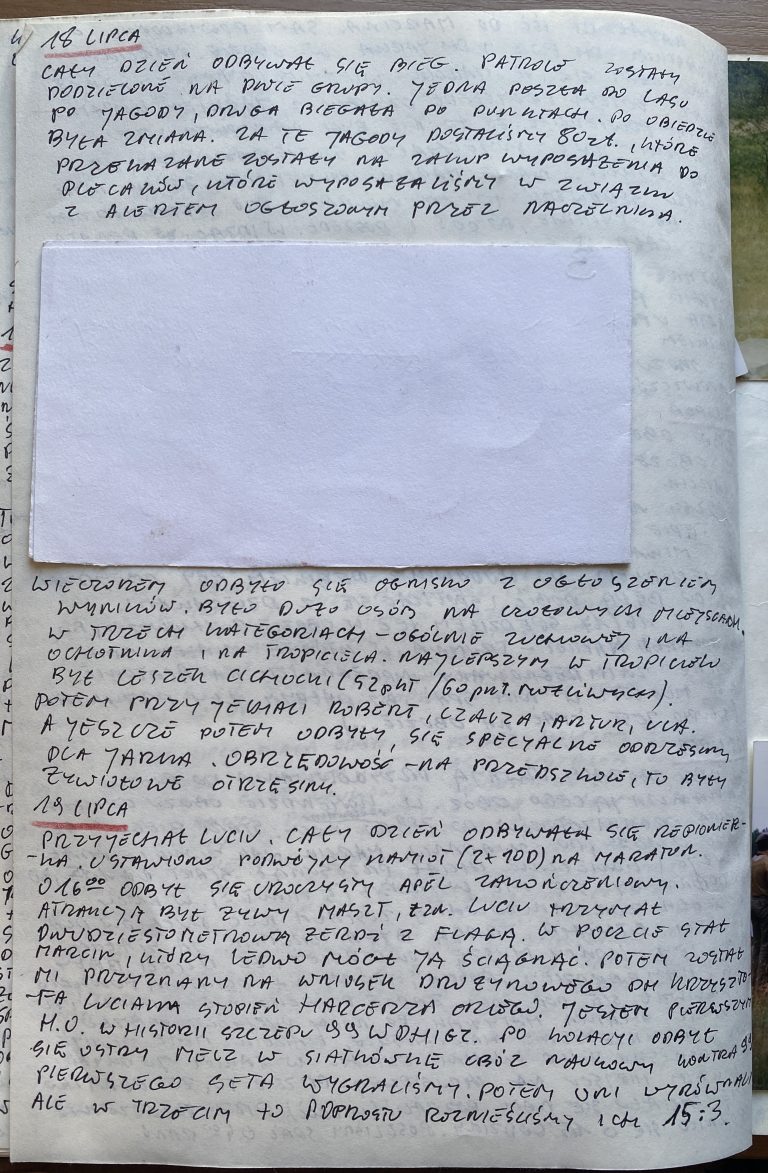 18 LIPCA
CAŁY DZIEŃ ODBYWAŁ SIĘ BIEG. PATROLE ZOSTAŁY
PODZIELONE NA DWIE GRUPY. JEDNA POSZŁA DO LASU
PO JAGODY, DRUGA BIEGAŁA PO PUNKTACH. PO OBIEDZIE
BYŁA ZMIANA. ZA TE JAGODY DOSTALIŚMY 80 ZŁ., KTÓRE
PRZEKAZANE ZOSTAŁY NA ZAKUP WYPOSAŻENIA DO
PLECAKÓW, KTÓRE WYPOSAŻALIŚMY W ZWIĄZKU
Z ALERTEM OGŁOSZONYM PRZEZ NACZELNIKA.
WIECZOREM ODBYŁO SIĘ OGNISKO Z OGŁOSZENIEM
WYNIKÓW. BYŁO DUŻO OSÓB NA CZOŁOWYCH MIEJSCACH.
W TRZECH KATEGORIACH - OGÓLNIE ZUCHOWEJ, NA
OCHOTNIKA I NA TROPICIELA. NAJLEPSZYM W TROPICIELU
BYŁ LESZEK CICHOCKI (52 PKT / 60 PKT. MOŻLIWYCH).
POTEM PRZYJECHALI ROBERT, CZACZA, ARTUR, ULA.
A JESZCZE POTEM ODBYŁY SIĘ SPECJALNE ODRZĘSINY
DLA JARKA. OBRZĘDOWOŚĆ - NA PRZEDSZKOLE, TO BYŁY
ŻYWIOŁOWE OTRZĘSINY.
19 LIPCA
PRZYJECHAŁ LUCIU. CAŁY DZIEŃ ODBYWAŁA SIĘ REPIONIER-
-KA. USTAWIONO PODWÓJNY NAMIOT (2x10D) NA MARATON.
O 16⁰⁰ ODBYŁ SIĘ UROCZYSTY APEL ZAKOŃCZENIOWY.
ATRAKCJĄ BYŁ ŻYWY MASZT, TZN. LUCIU TRZYMAŁ
DWUDZIESTOMETROWĄ ŻERDŹ Z FLAGĄ. W POCZCIE STAŁ
MARCIN, KTÓRY LEDWO MÓGŁ JĄ ŚCIĄGNĄĆ. POTEM ZOSTAŁ
MI PRZYZNANY NA WNIOSEK DRUŻYNOWEGO DH KRZYSZTO-
-FA LUCIANA STOPIEŃ HARCERZA ORLEGO. JESTEM PIERWSZYM
H.O. W HISTORII SZCZEPU 99 WDHIGZ. PO KOLACJI ODBYŁ
SIĘ OSTRY MECZ W SIATKÓWKĘ OBÓZ NAUKOWY KONTRA 99
PIERWSZEGO SETA WYGRALIŚMY. POTEM ONI WYRÓWNALI
ALE W TRZECIM TO POPROSTU ROZNIEŚLIŚMY ICH 15:3.